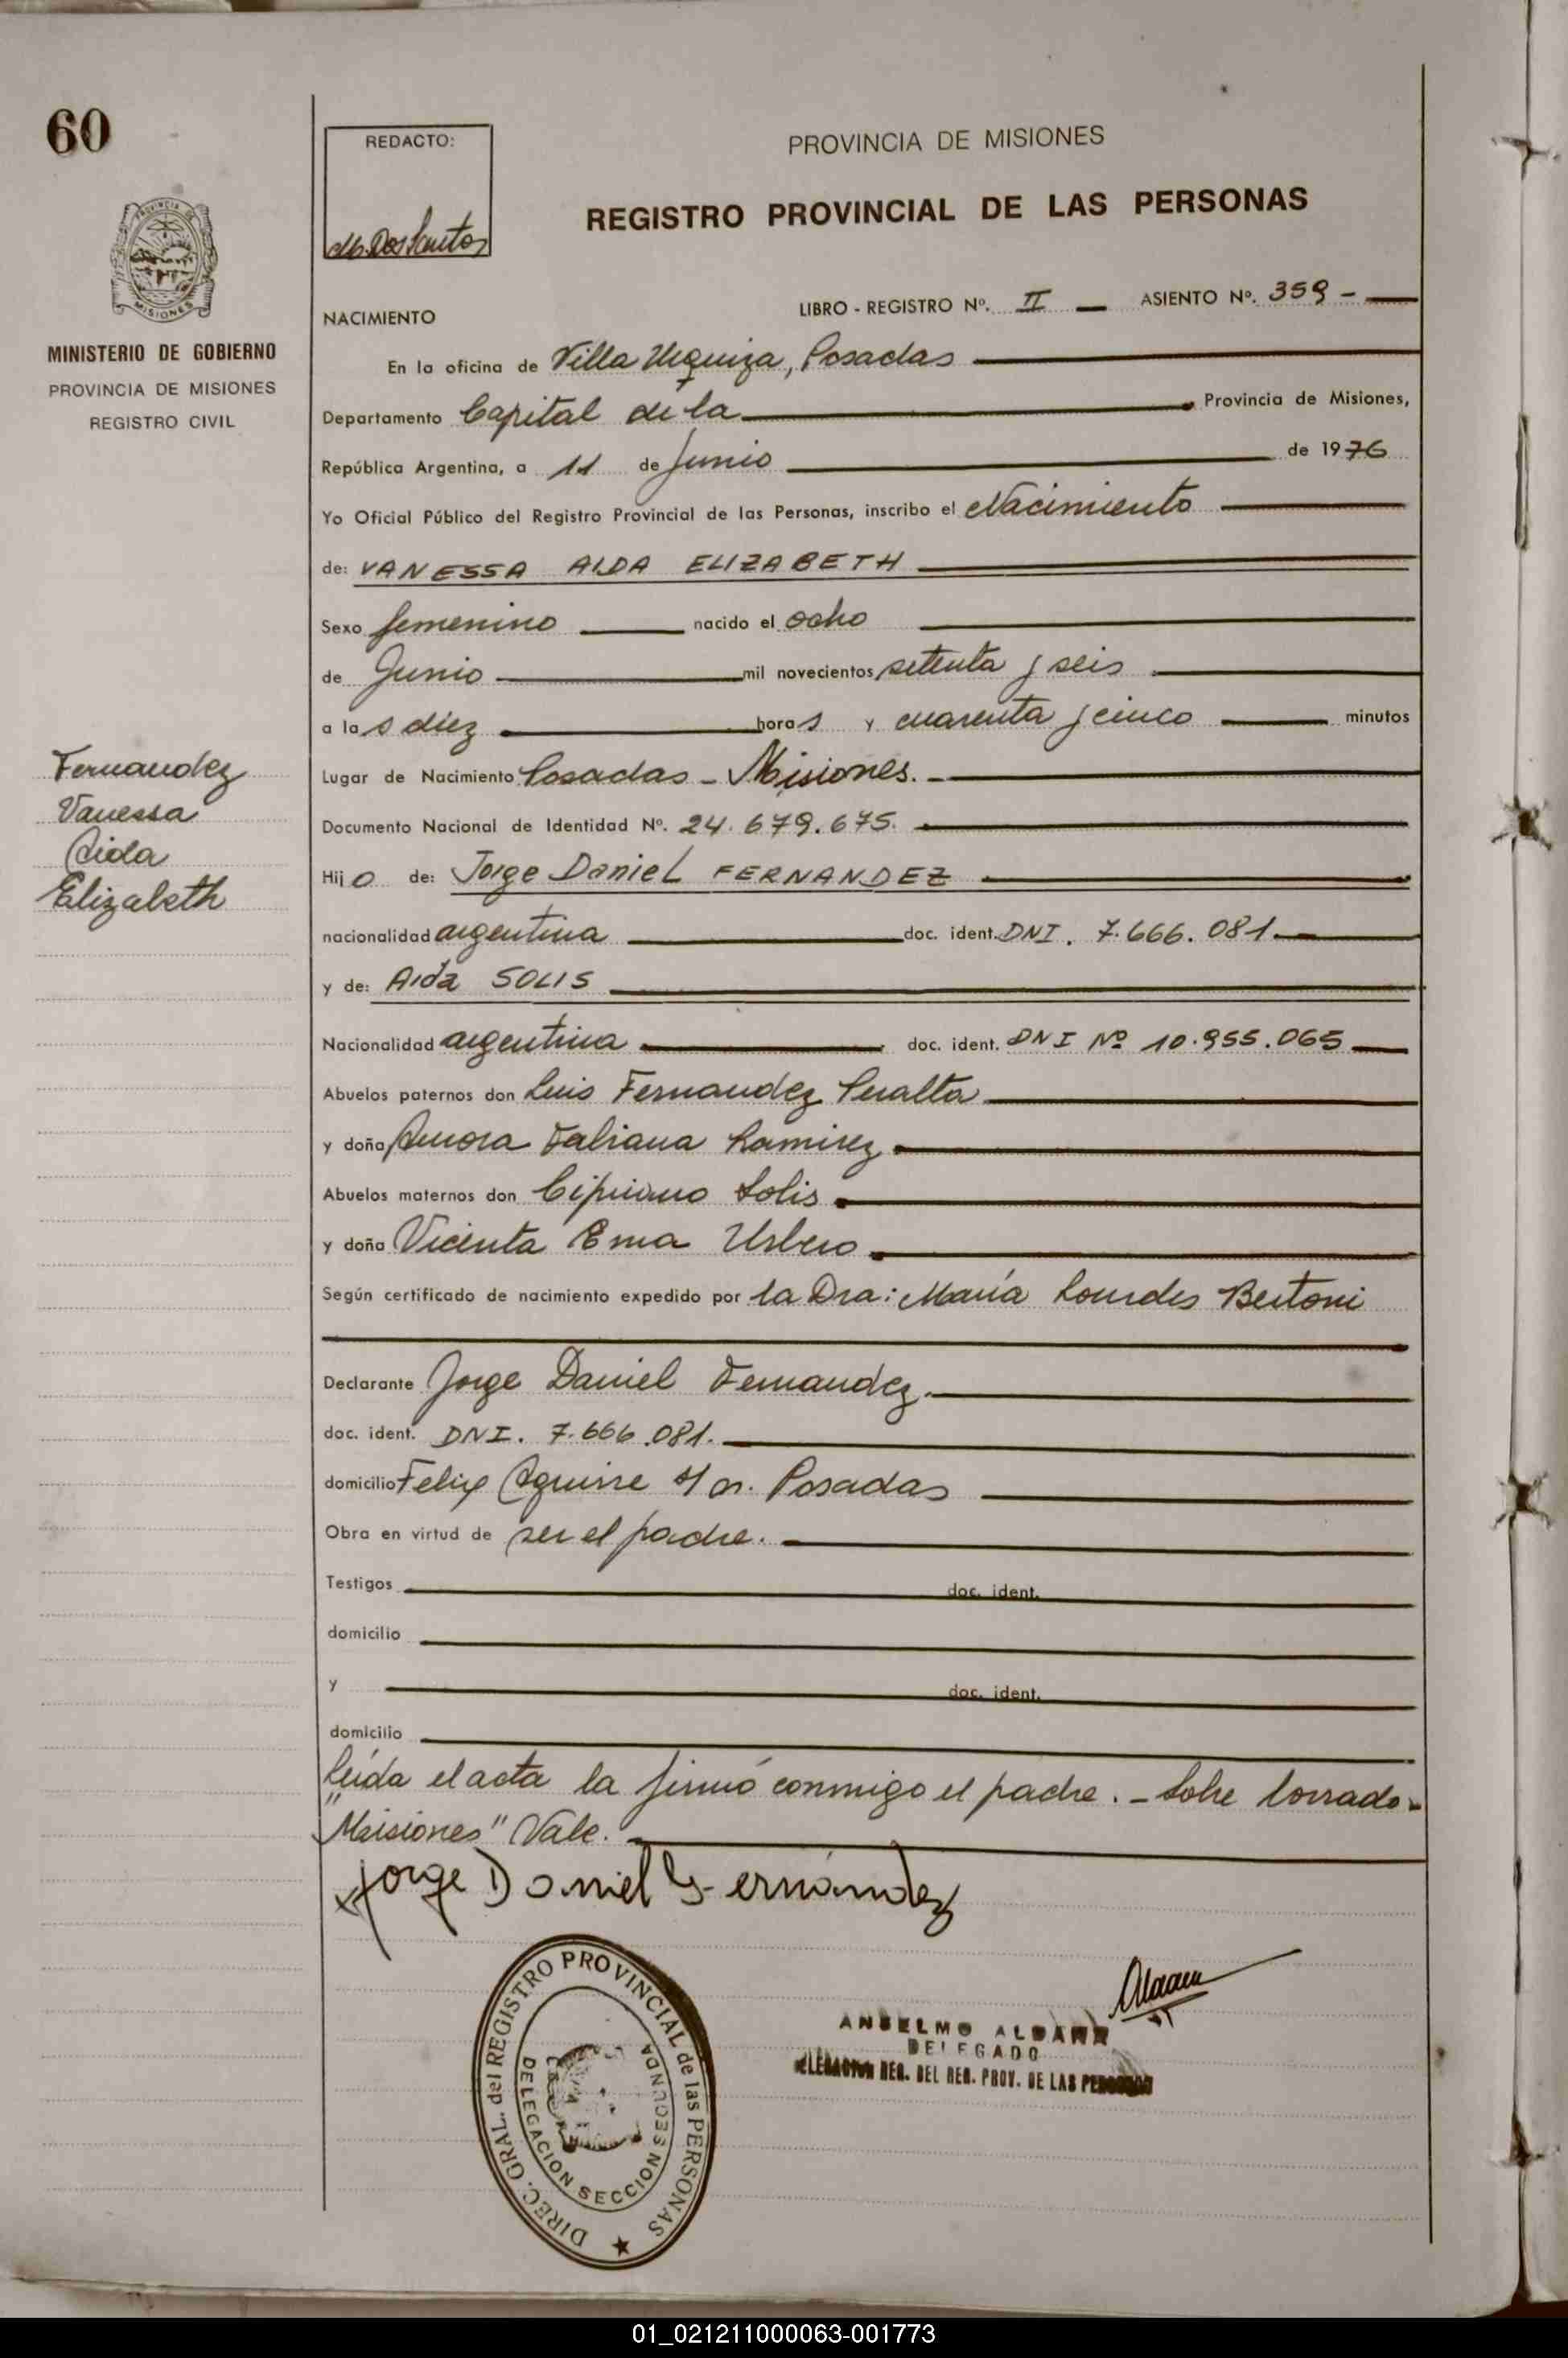 60
REDACTO:
M. Dos Santos
PROVINCIA DE MISIONES
REGISTRO PROVINCIAL DE LAS PERSONAS
PROVINCIA DE
MISIONES
MINISTERIO DE GOBIERNO
PROVINCIA DE MISIONES
REGISTRO CIVIL
LIBRO - REGISTRO Nº. II — ASIENTO Nº. 359 -
NACIMIENTO
En la oficina de Villa Urquiza, Posadas
Departamento Capital de la Provincia de Misiones,
República Argentina, a 11 de Junio de 1976
Yo Oficial Público del Registro Provincial de las Personas, inscribo el Nacimiento
de: VANESSA AIDA ELIZABETH
Sexo femenino nacido el ocho
de Junio mil novecientos setenta y seis
a las diez horas y cuarenta y cinco minutos
Lugar de Nacimiento Posadas - Misiones. -
Documento Nacional de Identidad Nº. 24.679.675.
Hija de: Jorge Daniel FERNANDEZ
nacionalidad argentina doc. ident. DNI. 7.666.081.
y de: Aída SOLIS
Nacionalidad argentina doc. ident. DNI Nº 10.955.065
Abuelos paternos don Luis Fernandez Peralta
y doña Ramirez
Abuelos maternos don Cipriano Solis
y doña Vicenta Ema
Según certificado de nacimiento expedido por la Dra: María Lourdes Bertoni
Declarante Jorge Daniel Fernandez.
doc. ident. DNI. 7.666.081.
domicilio Felix Aguirre s/n. Posadas
Obra en virtud de ser el padre.
Testigos doc. ident.
domicilio
y doc. ident.
domicilio
Leída el acta la firmó conmigo el padre. - Sobre borrado -
"Misiones" Vale.
Jorge Daniel Fernández
Fernandez
Vanessa
Aida
Elizabeth
DIREC. GRAL. del REGISTRO PROVINCIAL de las PERSONAS
DELEGACION SECCION SEGUNDA
ANSELMO
DELEGADO
DELEGACION REG. DEL REG. PROV. DE LAS PERSONAS
01_021211000063-001773